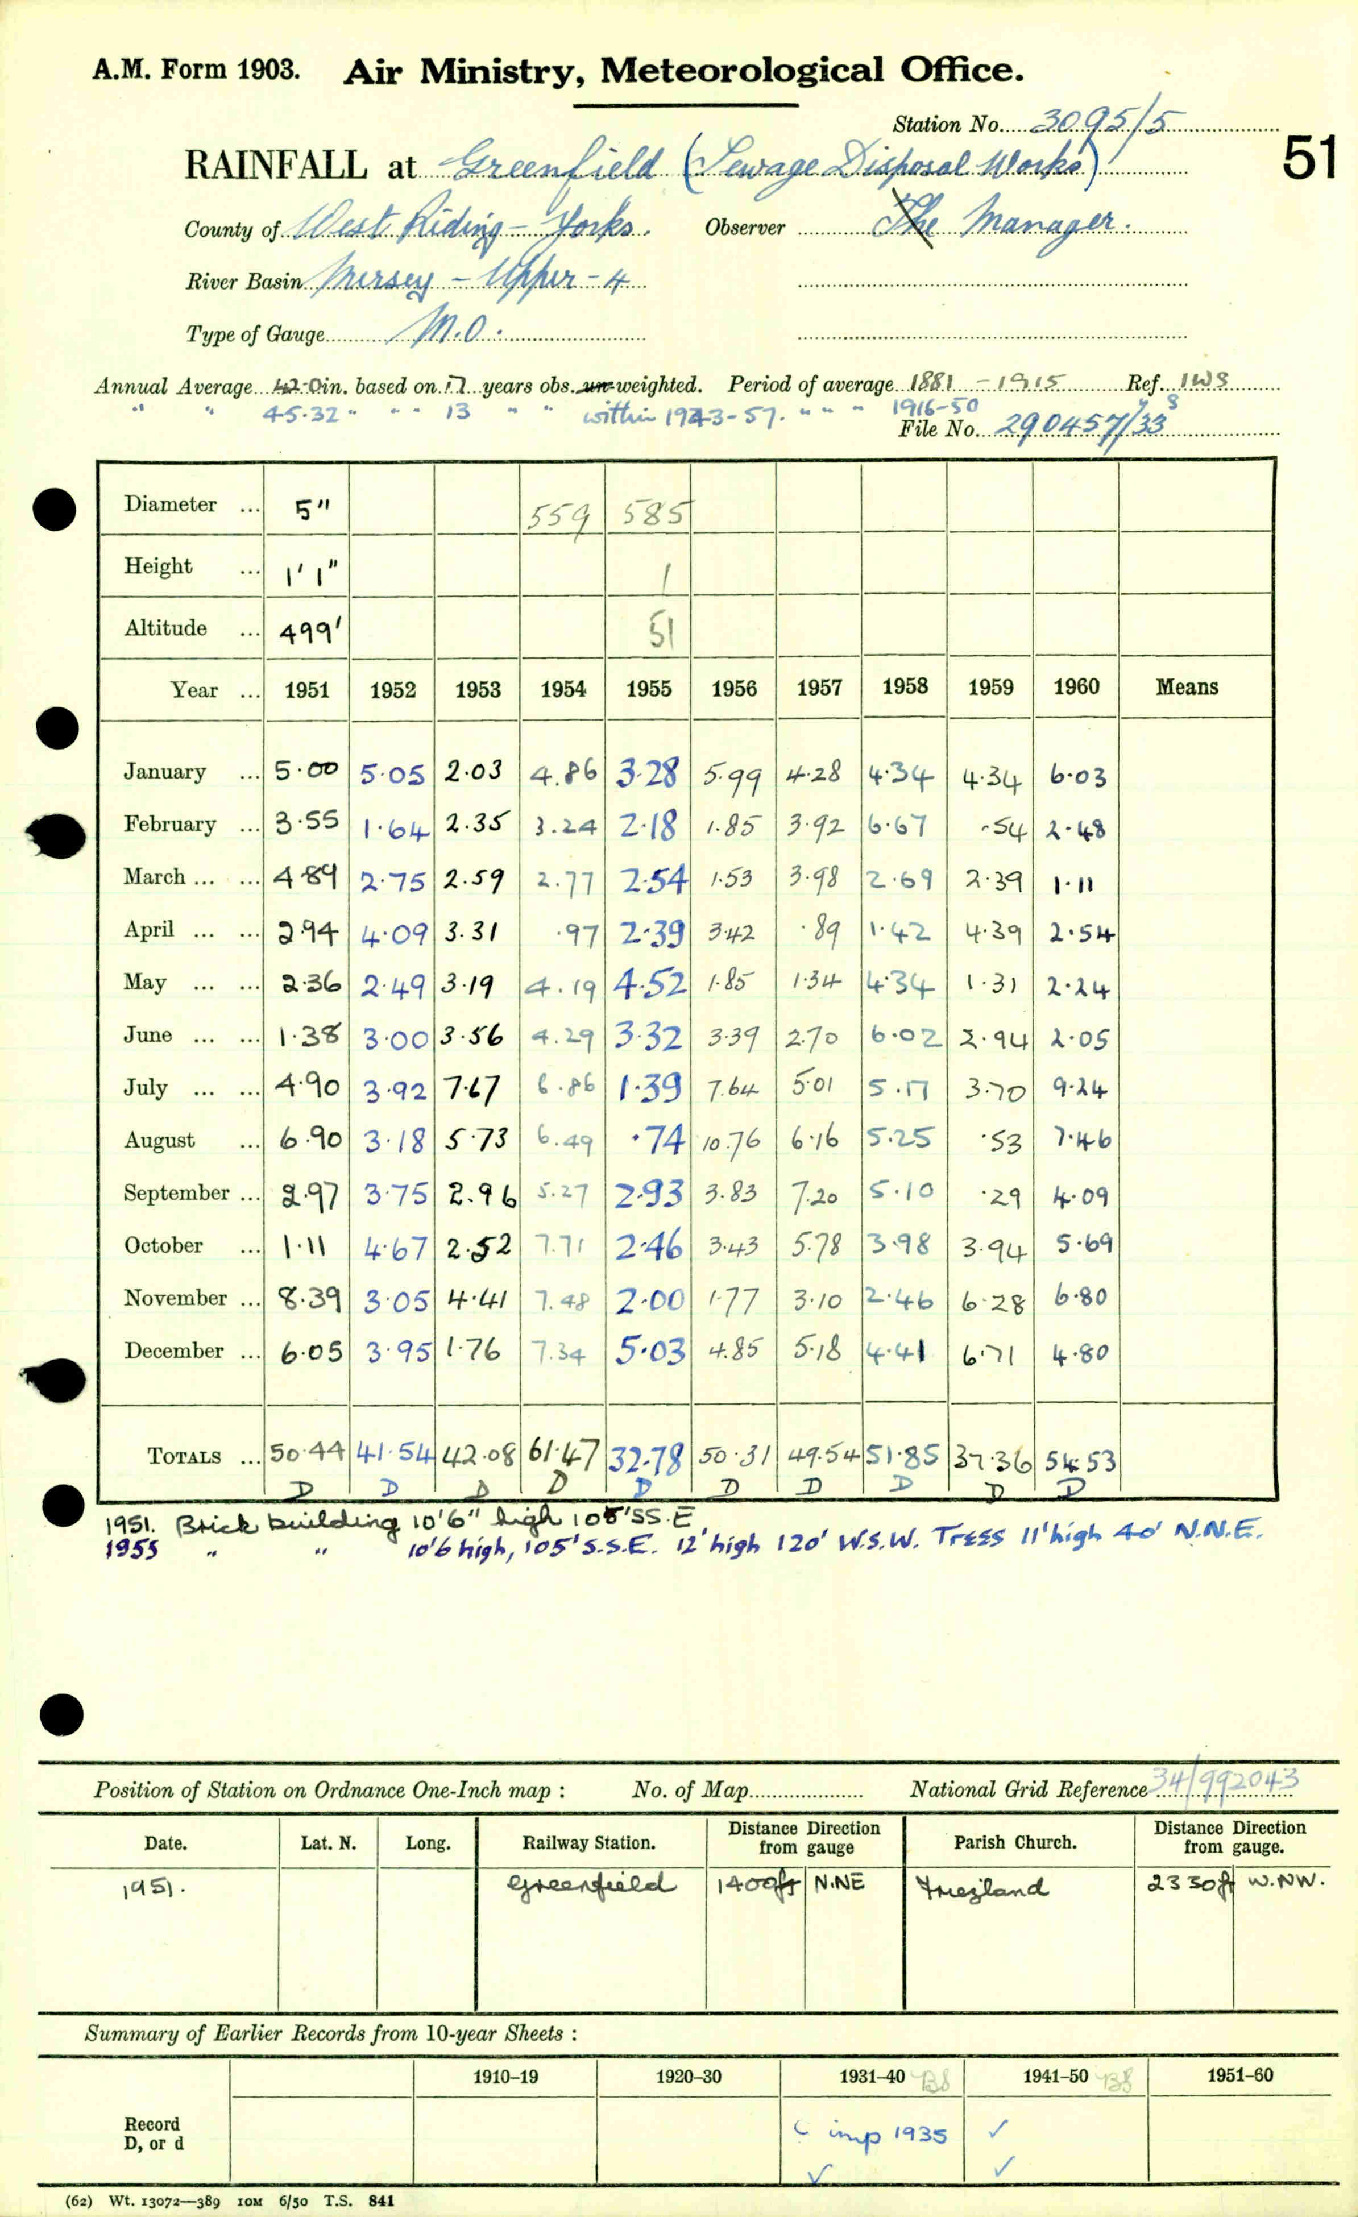 A.M. Form 1903. Air Ministry, Meteorological Office.
Station No. 3095/5
51
RAINFALL at Greenfield (Sewage Disposal Works)
County of West Riding - Yorks. Observer The Manager.
River Basin Mersey - Upper - 4
Type of Gauge M.O.
Annual Average 42.0 in. based on 17 years obs. un-weighted. Period of average 1881 - 1915 Ref. IWS
" " 45.32 " " " 13 " " within 1943-57. " " " 1916-50
File No. 290457/33
Diameter ... 5" 559 585
Height ... 1' 1" 1
Altitude ... 499' 51
Year ... 1951 1952 1953 1954 1955 1956 1957 1958 1959 1960 Means
January ... 5.00 5.05 2.03 4.86 3.28 5.99 4.28 4.34 4.34 6.03
February ... 3.55 1.64 2.35 3.24 2.18 1.85 3.92 6.67 .54 2.48
March ... ... 4.89 2.75 2.59 2.77 2.54 1.53 3.98 2.69 2.39 1.11
April ... ... 2.94 4.09 3.31 .97 2.39 3.42 .89 1.42 4.39 2.54
May ... ... 2.36 2.49 3.19 4.19 4.52 1.85 1.34 4.34 1.31 2.24
June ... ... 1.38 3.00 3.56 4.29 3.32 3.39 2.70 6.02 2.94 2.05
July ... ... 4.90 3.92 7.67 6.86 1.39 7.64 5.01 5.17 3.70 9.24
August ... 6.90 3.18 5.73 6.49 .74 10.76 6.16 5.25 .53 7.46
September ... 2.97 3.75 2.96 5.27 2.93 3.83 7.20 5.10 .29 4.09
October ... 1.11 4.67 2.52 7.71 2.46 3.43 5.78 3.98 3.94 5.69
November ... 8.39 3.05 4.41 7.48 2.00 1.77 3.10 2.46 6.28 6.80
December ... 6.05 3.95 1.76 7.34 5.03 4.85 5.18 4.41 6.71 4.80
TOTALS ... 50.44 41.54 42.08 61.47 32.78 50.31 49.54 51.85 37.36 54.53
D D D D D D D D D D
1951. Brick building 10'6" high 105' SS.E
1955 " " 10'6 high, 105' S.S.E. 12' high 120' W.S.W. Trees 11' high 40' N.N.E.
Position of Station on Ordnance One-Inch map : No. of Map National Grid Reference 34/992043
Date. Lat. N. Long. Railway Station. Distance from Direction gauge Parish Church. Distance from Direction gauge.
1951. Greenfield 1400ft N.NE Friezland 2330ft W.NW.
Summary of Earlier Records from 10-year Sheets :
1910–19 1920–30 1931–40 B8 1941–50 B8 1951–60
Record
D, or d
imp 1935 ✓
✓ ✓
(62) Wt. 13072—389 10M 6/50 T.S. 841